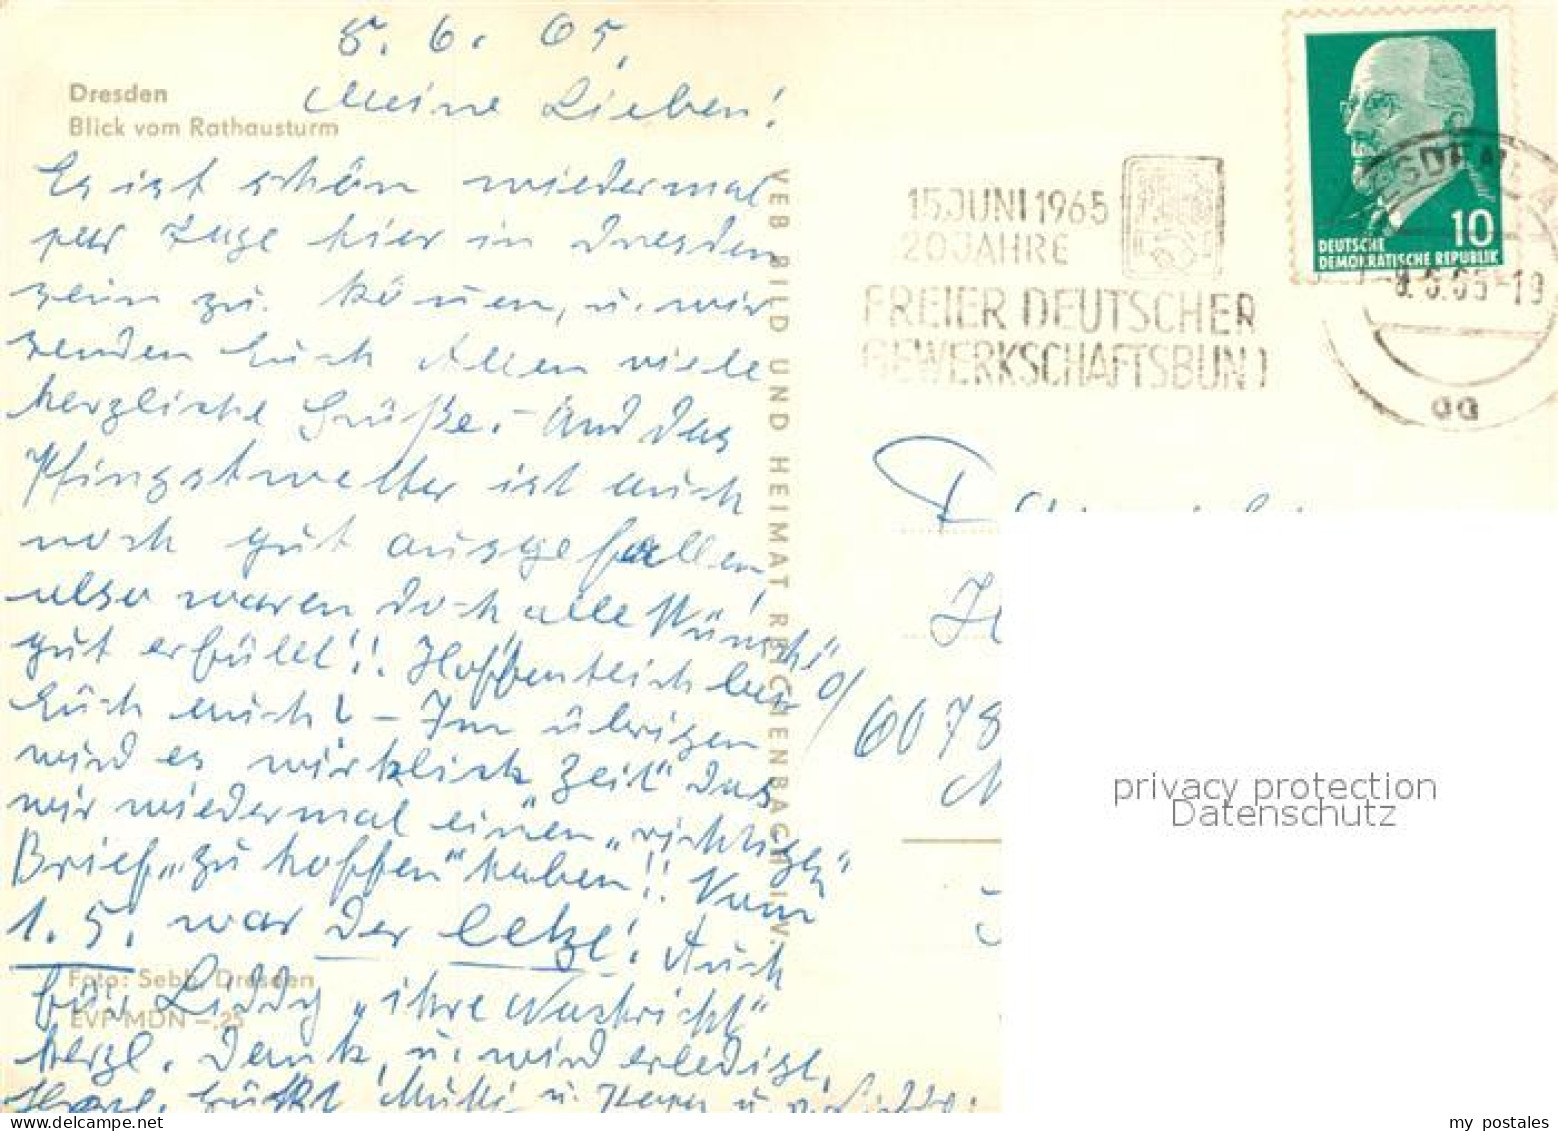 8. 6. 65.
Dresden
Blick vom Rathausturm
Meine Lieben!
Es ist schön wiedermal
paar Tage hier in Dresden
sein zu können, u. wir
senden Euch Allen viele
herzliche Grüße. - Und das
Pfingstwetter ist auch
noch gut ausgefallen,
also waren doch alle Wünsche
gut erfüllt!! Hoffentlich bei
Euch auch! - Im übrigen
wird es wirklich Zeit" das
wir wiedermal einen „richtigen"
Brief „zu hoffen" haben!! Vom
1. 5. war der letze! Auch
für Liddy „ihre Nachricht"
herzl. Dank, u. wird erledigt.
Herzl. grüßt Mutti u.
Foto: Sebb, Dresden
EVP MDN -,25
VEB BILD UND HEIMAT REICHENBACH I. V.
15. JUNI 1965
20 JAHRE
FREIER DEUTSCHER
GEWERKSCHAFTSBUND
10
DEUTSCHE
DEMOKRATISCHE REPUBLIK
DRESDEN
-8.6.65-19
aa
6078
privacy protection
Datenschutz
my postales